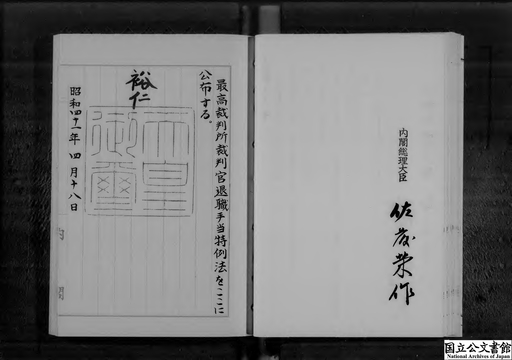 最高裁判所裁判官退職手当特例法をここに
公布する。
裕仁
天皇
御璽
昭和四十一年四月十八日
内閣総理大臣
佐藤榮作
国立公文書館
National Archives of Japan